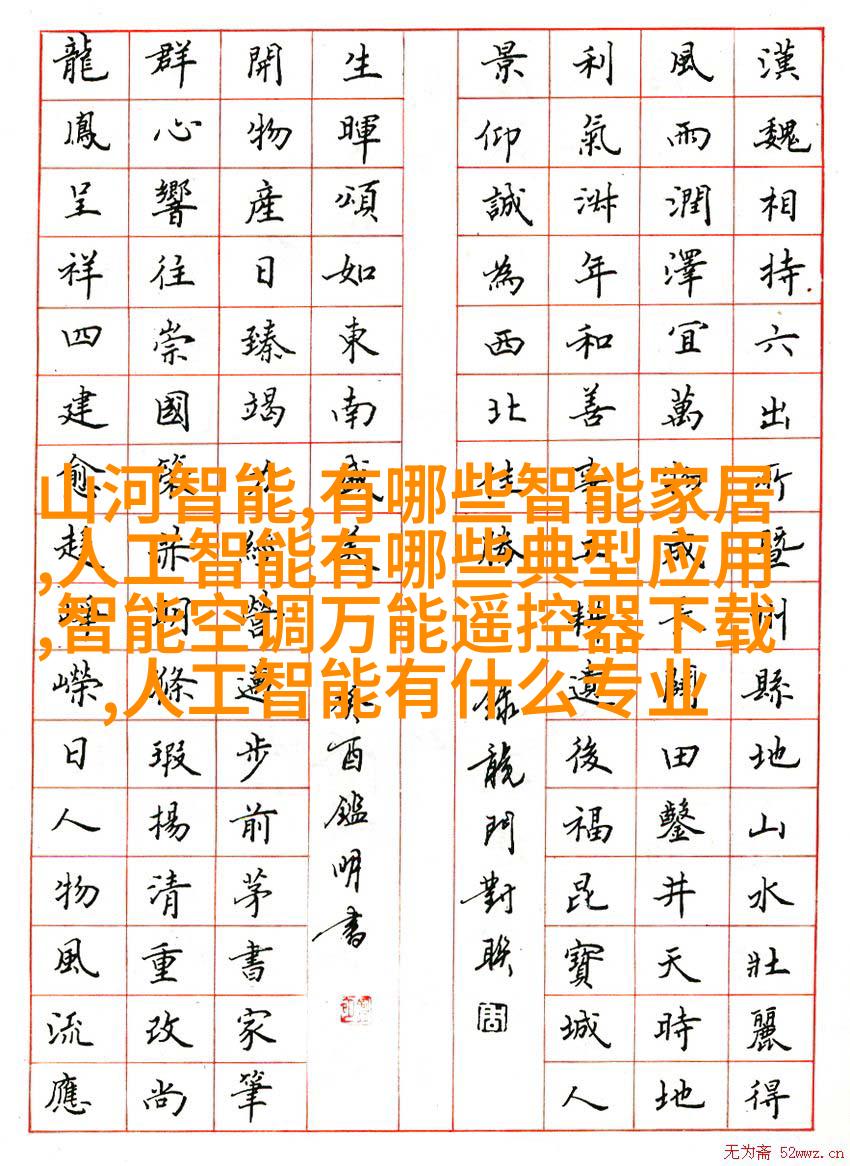 漢魏相持六出所暨州縣地山水壯麗得
風雨潤澤宜萬物咸長闢田鑿井天時地
利氣年和善事耕遺後福昆寶城人
景仰誠為西北佳勝
錄龍門對聯
生暉頌如東南盛美
癸酉鑑明書
開物產日臻竭力經營邁步前茅書家筆
群心響往崇國策條瑕揚清重改尚
龍鳳呈祥四建愈趨崢嶸日人物風流應
山河智能,有哪些智能家居
,人工智能有哪些典型应用
,智能空调万能遥控器下载
,人工智能有什么专业
无为斋 52wwz.cn